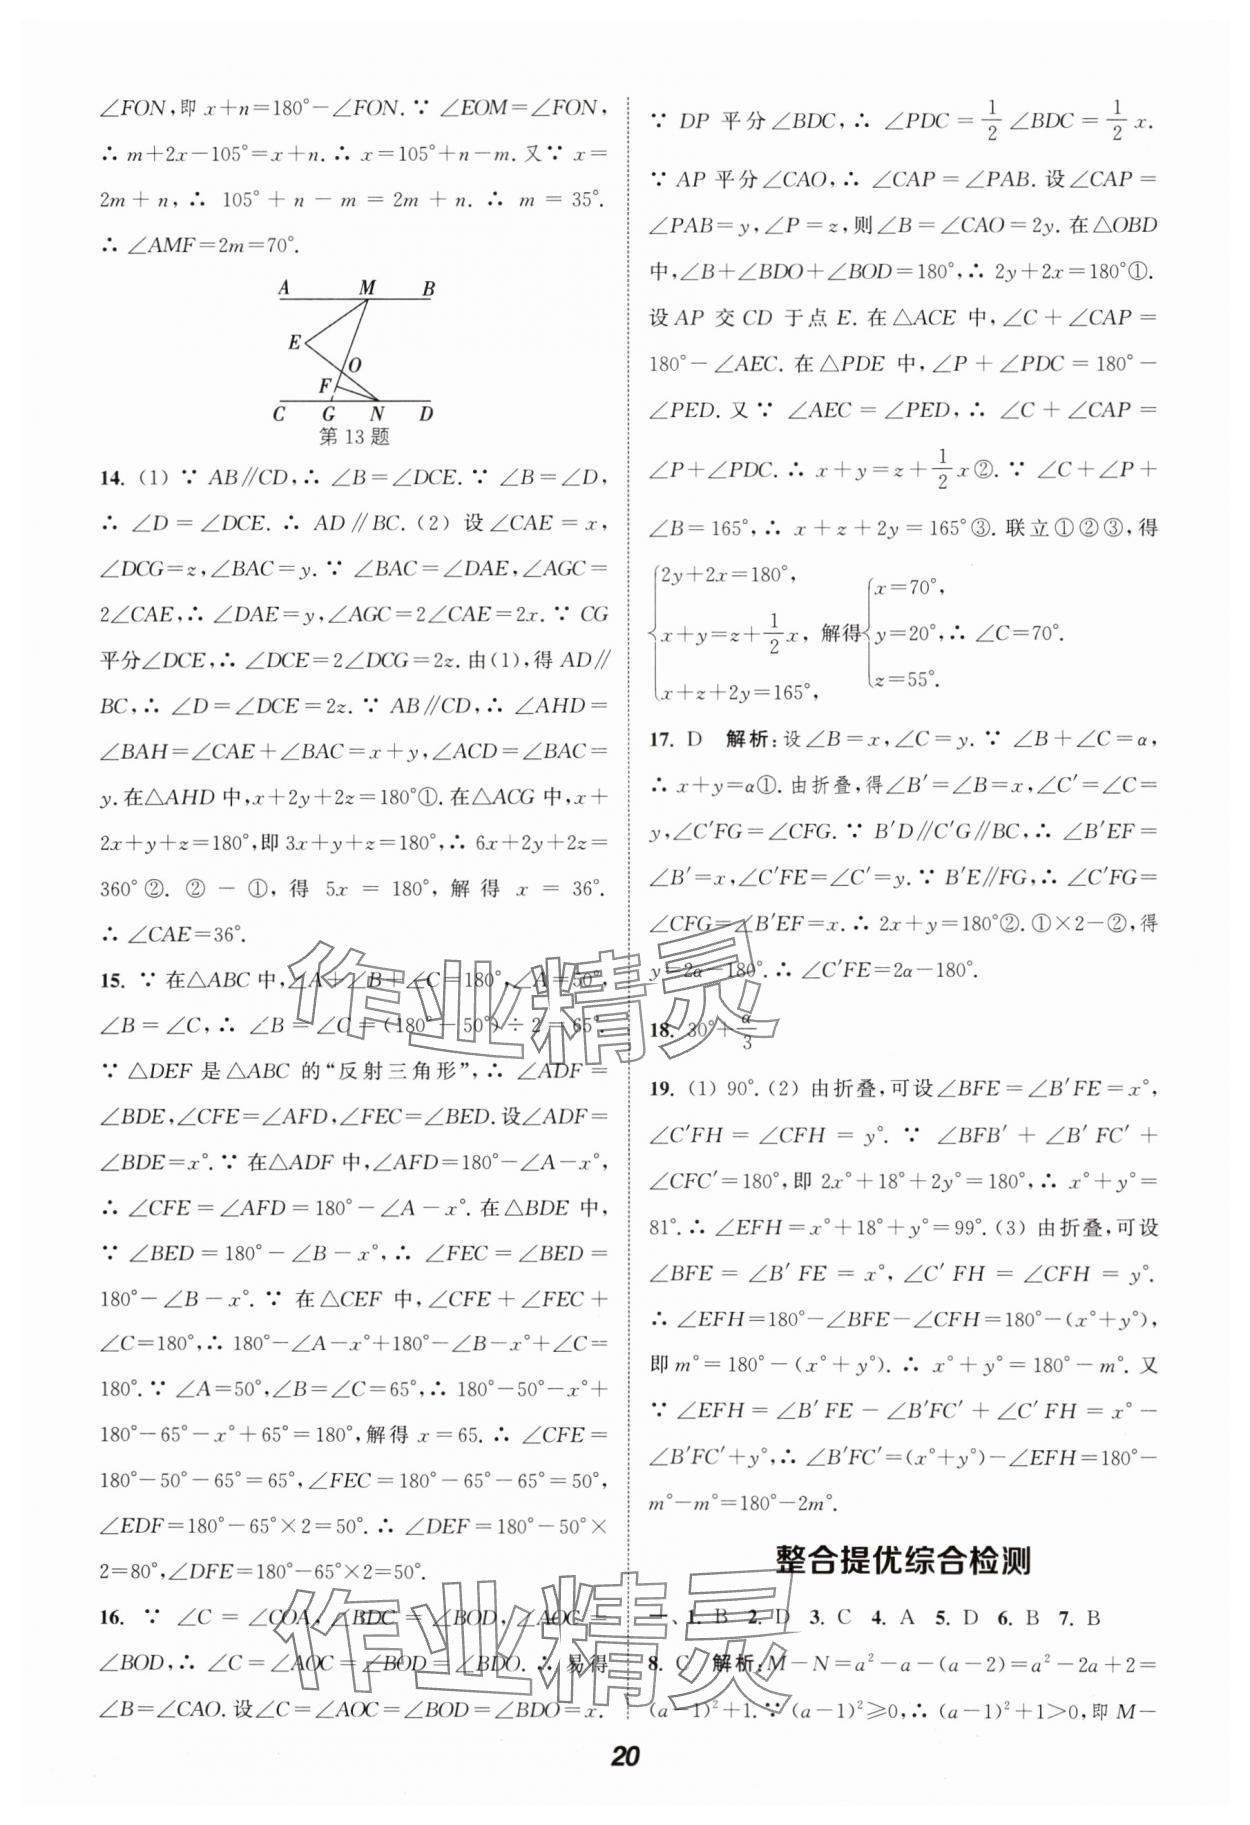 ∠FON,即 x+n=180°-∠FON.∵ ∠EOM=∠FON,
∴ m+2x-105°=x+n.∴ x=105°+n-m.又∵ x=
2m+n,∴ 105°+n-m=2m+n.∴ m=35°.
∴ ∠AMF=2m=70°.
A M B
E
O
F
C G N D
第13题
14. (1) ∵ AB∥CD,∴ ∠B=∠DCE.∵ ∠B=∠D,
∴ ∠D=∠DCE.∴ AD∥BC.(2) 设∠CAE=x,
∠DCG=z,∠BAC=y.∵ ∠BAC=∠DAE,∠AGC=
2∠CAE,∴ ∠DAE=y,∠AGC=2∠CAE=2x.∵ CG
平分∠DCE,∴ ∠DCE=2∠DCG=2z.由(1),得AD∥
BC,∴ ∠D=∠DCE=2z.∵ AB∥CD,∴ ∠AHD=
∠BAH=∠CAE+∠BAC=x+y,∠ACD=∠BAC=
y.在△AHD中,x+2y+2z=180°①.在△ACG中,x+
2x+y+z=180°,即3x+y+z=180°,∴ 6x+2y+2z=
360°②. ②-①,得 5x=180°,解得 x=36°.
∴ ∠CAE=36°.
15. ∵ 在△ABC中,∠A+∠B+∠C=180°,∠A=50°,
∠B=∠C,∴ ∠B=∠C=(180°-50°)÷2=65°.
∵ △DEF是△ABC的“反射三角形”,∴ ∠ADF=
∠BDE,∠CFE=∠AFD,∠FEC=∠BED.设∠ADF=
∠BDE=x°.∵ 在△ADF中,∠AFD=180°-∠A-x°,
∴ ∠CFE=∠AFD=180°-∠A-x°.在△BDE中,
∵ ∠BED=180°-∠B-x°,∴ ∠FEC=∠BED=
180°-∠B-x°.∵ 在△CEF中,∠CFE+∠FEC+
∠C=180°,∴ 180°-∠A-x°+180°-∠B-x°+∠C=
180°.∵ ∠A=50°,∠B=∠C=65°,∴ 180°-50°-x°+
180°-65°-x°+65°=180°,解得 x=65.∴ ∠CFE=
180°-50°-65°=65°,∠FEC=180°-65°-65°=50°.
∠EDF=180°-65°×2=50°.∴ ∠DEF=180°-50°×
2=80°,∠DFE=180°-65°×2=50°.
16. ∵ ∠C=∠COA,∠BDC=∠BOD,∠AOC=
∠BOD,∴ ∠C=∠AOC=∠BOD=∠BDO.∴ 易得
∠B=∠CAO.设∠C=∠AOC=∠BOD=∠BDO=x.
∵ DP平分∠BDC,∴ ∠PDC=1/2∠BDC=1/2x.
∵ AP平分∠CAO,∴ ∠CAP=∠PAB.设∠CAP=
∠PAB=y,∠P=z,则∠B=∠CAO=2y.在△OBD
中,∠B+∠BDO+∠BOD=180°,∴ 2y+2x=180°①.
设AP交CD于点E.在△ACE中,∠C+∠CAP=
180°-∠AEC.在△PDE中,∠P+∠PDC=180°-
∠PED.又∵ ∠AEC=∠PED,∴ ∠C+∠CAP=
∠P+∠PDC.∴ x+y=z+1/2x②.∵ ∠C+∠P+
∠B=165°,∴ x+z+2y=165°③.联立①②③,得
2y+2x=180°,
x+y=z+1/2x,
x+z+2y=165°,
解得
x=70°,
y=20°,∴ ∠C=70°.
z=55°.
17. D 解析:设∠B=x,∠C=y.∵ ∠B+∠C=α,
∴ x+y=α①.由折叠,得∠B′=∠B=x,∠C′=∠C=
y,∠C′FG=∠CFG.∵ B′D∥C′G∥BC,∴ ∠B′EF=
∠B′=x,∠C′FE=∠C′=y.∵ B′E∥FG,∴ ∠C′FG=
∠CFG=∠B′EF=x.∴ 2x+y=180°②.①×2-②,得
y=2α-180°.∴ ∠C′FE=2α-180°.
18. 30°+α/3
19. (1) 90°.(2) 由折叠,可设∠BFE=∠B′FE=x°,
∠C′FH=∠CFH=y°.∵ ∠BFB′+∠B′FC′+
∠CFC′=180°,即 2x°+18°+2y°=180°,∴ x°+y°=
81°.∴ ∠EFH=x°+18°+y°=99°.(3) 由折叠,可设
∠BFE=∠B′FE=x°,∠C′FH=∠CFH=y°.
∴ ∠EFH=180°-∠BFE-∠CFH=180°-(x°+y°),
即m°=180°-(x°+y°).∴ x°+y°=180°-m°.又
∵ ∠EFH=∠B′FE-∠B′FC′+∠C′FH=x°-
∠B′FC′+y°,∴ ∠B′FC′=(x°+y°)-∠EFH=180°-
m°-m°=180°-2m°.
整合提优综合检测
一、1. B 2. D 3. C 4. A 5. D 6. B 7. B
8. C 解析:M-N=a²-a-(a-2)=a²-2a+2=
(a-1)²+1.∵ (a-1)²≥0,∴ (a-1)²+1>0,即M-
20
作业精灵
作业精灵